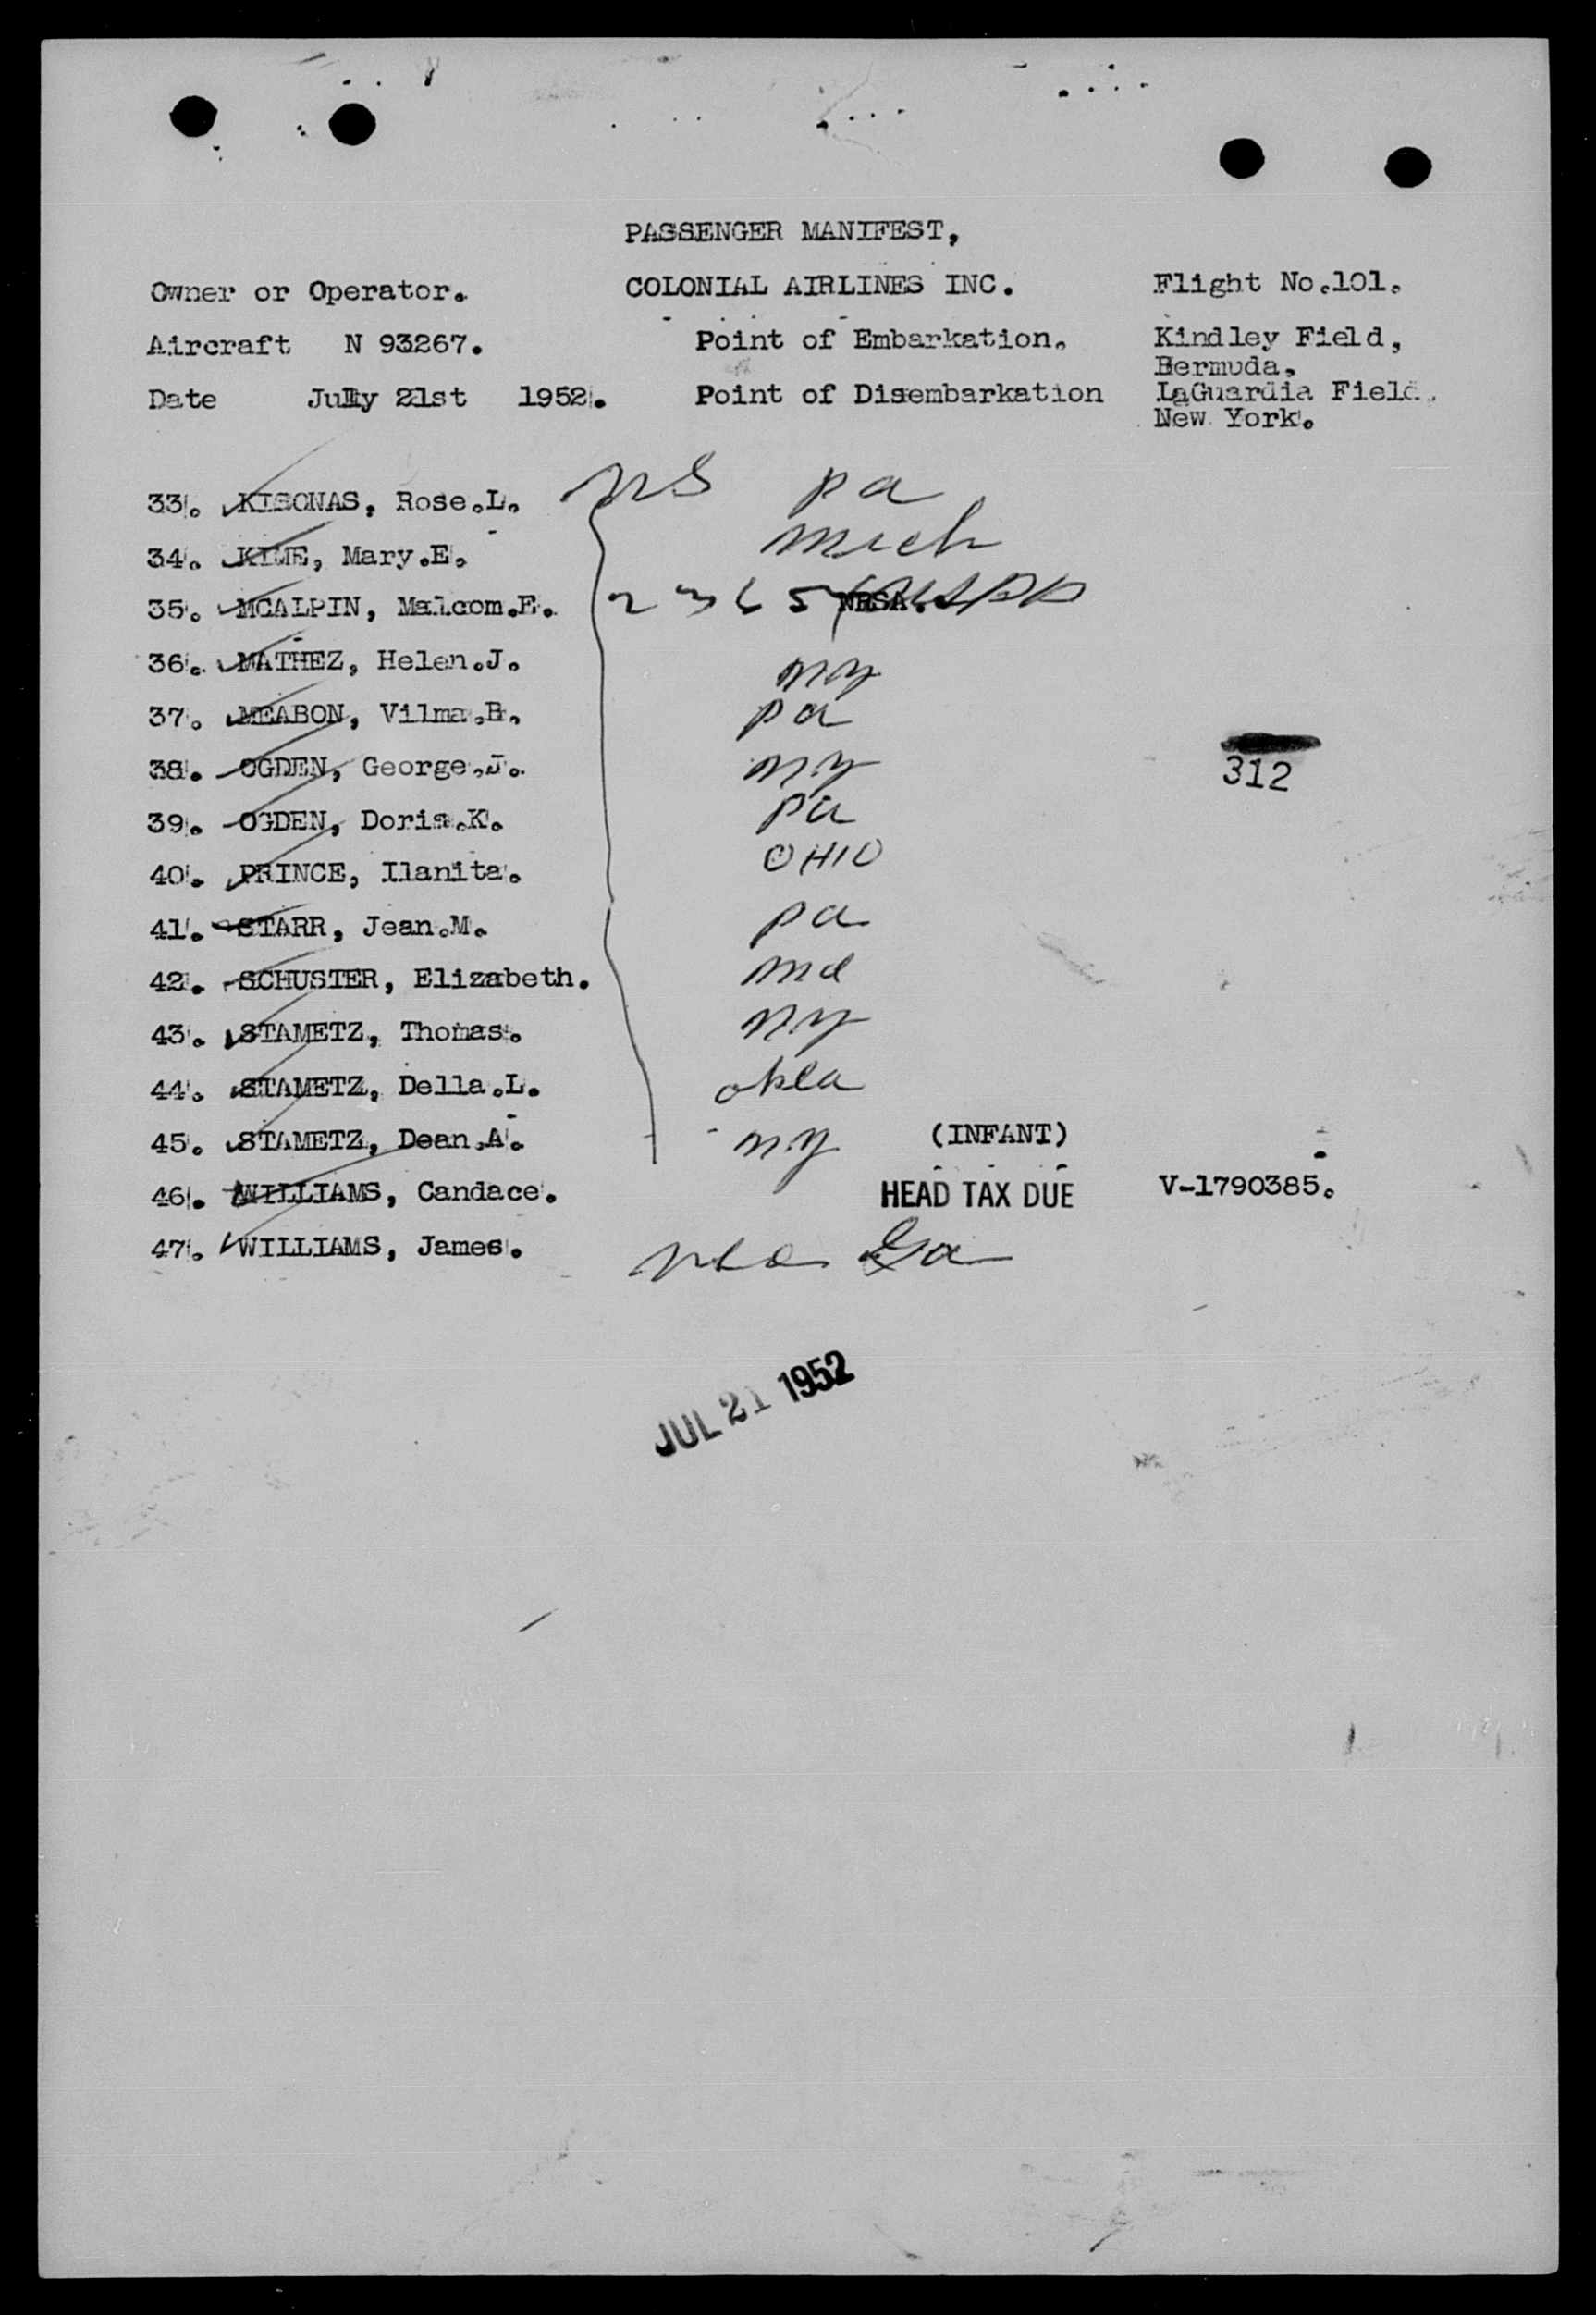 PASSENGER MANIFEST,
Owner or Operator. COLONIAL AIRLINES INC. Flight No.101.
Aircraft N 93267. Point of Embarkation. Kindley Field,
Bermuda.
Date July 21st 1952. Point of Disembarkation LaGuardia Field.
New York.
33. KISONAS, Rose.L. pa
34. KIME, Mary.E. mich
35. MCALPIN, Malcom.E.
36. MATHEZ, Helen.J. ny
37. MEABON, Vilma.B. pa
38. OGDEN, George.J. ny
312
39. OGDEN, Doris.K. pa
40. PRINCE, Ilanita. OHIO
41. STARR, Jean.M. pa
42. SCHUSTER, Elizabeth. md
43. STAMETZ, Thomas. ny
44. STAMETZ, Della.L. okla
45. STAMETZ, Dean.A. ny (INFANT)
46. WILLIAMS, Candace. HEAD TAX DUE V-1790385.
47. WILLIAMS, James. Ga
JUL 21 1952